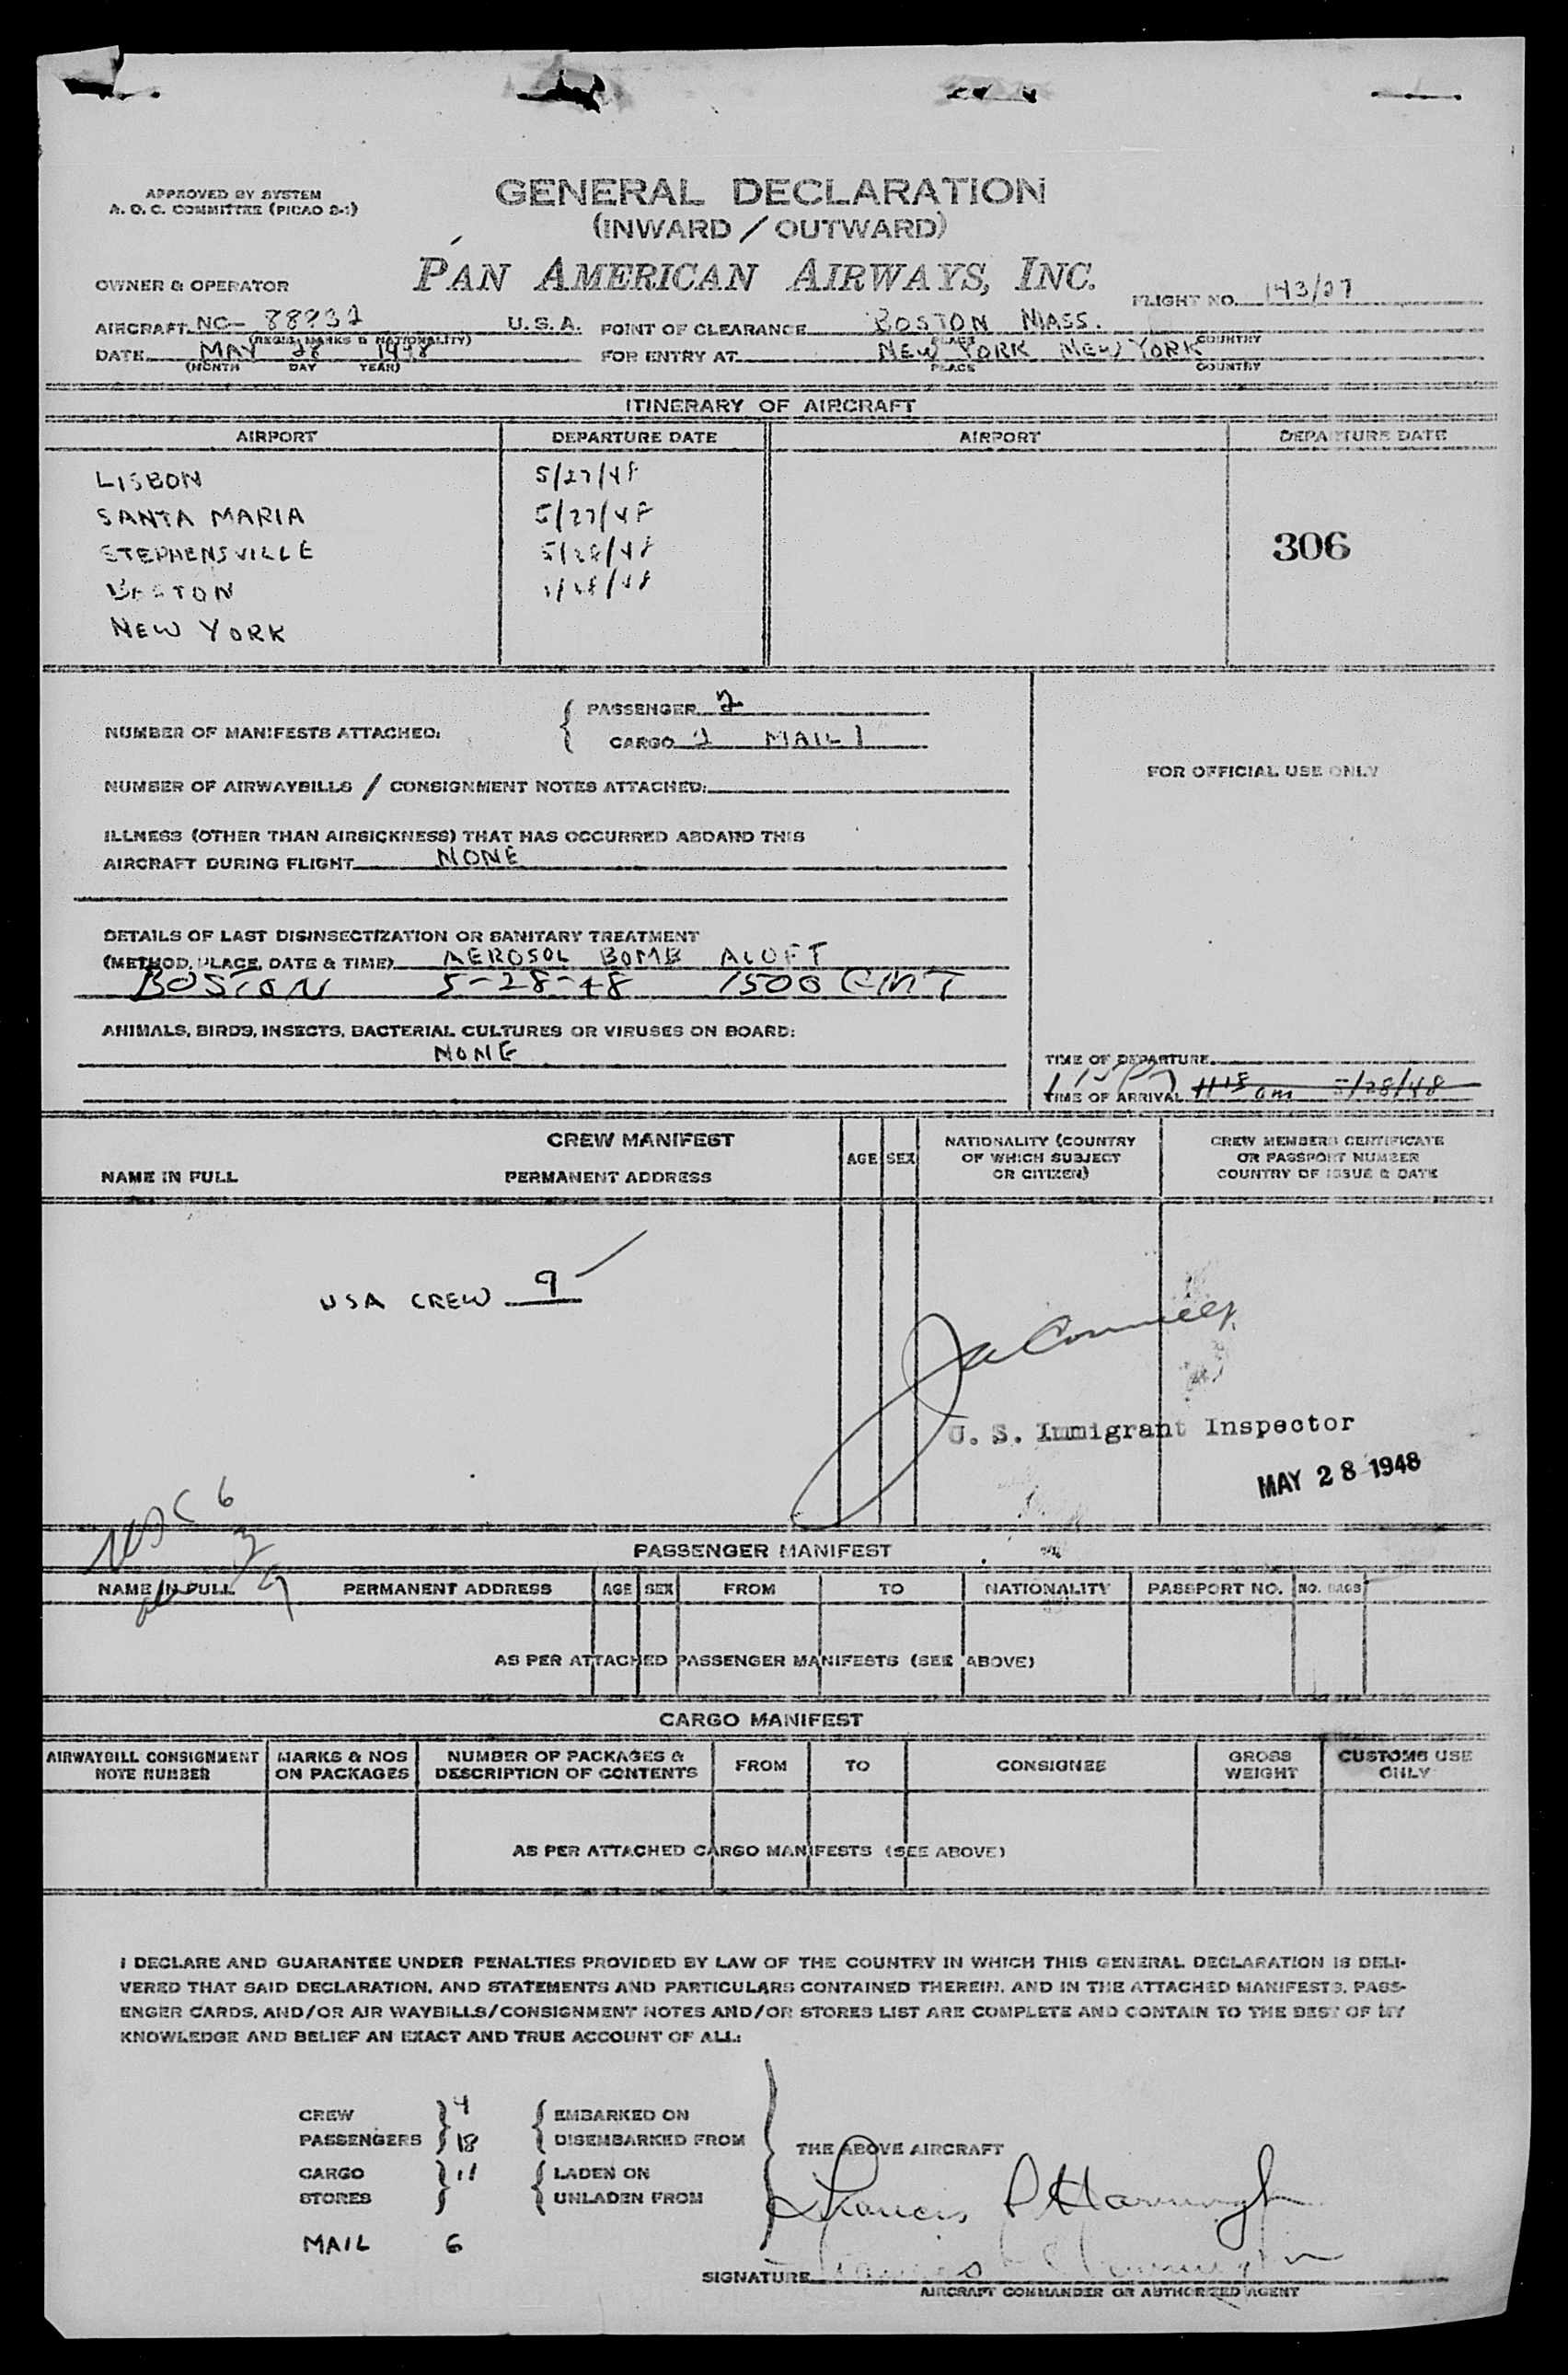 APPROVED BY SYSTEM
A. O. C. COMMITTEE (PICAO 2-1)
GENERAL DECLARATION
(INWARD / OUTWARD)
OWNER & OPERATOR
PAN AMERICAN AIRWAYS, INC.
FLIGHT NO. 143/27
AIRCRAFT NC- U. S. A. POINT OF CLEARANCE BOSTON MASS.
(REGIS. MARKS & NATIONALITY) PLACE COUNTRY
DATE MAY 28 1948 FOR ENTRY AT NEW YORK NEW YORK
(MONTH DAY YEAR) PLACE COUNTRY
ITINERARY OF AIRCRAFT
AIRPORT DEPARTURE DATE AIRPORT DEPARTURE DATE
LISBON 5/27/48
SANTA MARIA 5/27/48
STEPHENSVILLE 5/28/48
306
BOSTON 5/28/48
NEW YORK
PASSENGER 2
NUMBER OF MANIFESTS ATTACHED:
CARGO 2 MAIL 1
FOR OFFICIAL USE ONLY
NUMBER OF AIRWAYBILLS / CONSIGNMENT NOTES ATTACHED:
ILLNESS (OTHER THAN AIRSICKNESS) THAT HAS OCCURRED ABOARD THIS
AIRCRAFT DURING FLIGHT NONE
DETAILS OF LAST DISINSECTIZATION OR SANITARY TREATMENT
(METHOD, PLACE, DATE & TIME) AEROSOL BOMB ALOFT
BOSTON 5-28-48 1500 GMT
ANIMALS, BIRDS, INSECTS, BACTERIAL CULTURES OR VIRUSES ON BOARD:
NONE
TIME OF DEPARTURE
TIME OF ARRIVAL 11 15 am 5/28/48
CREW MANIFEST
NAME IN FULL PERMANENT ADDRESS AGE SEX NATIONALITY (COUNTRY OF WHICH SUBJECT OR CITIZEN) CREW MEMBERS CERTIFICATE OR PASSPORT NUMBER COUNTRY OF ISSUE & DATE
USA CREW 9
U. S. Immigrant Inspector
MAY 28 1948
USC 6
3
9
PASSENGER MANIFEST
NAME IN FULL PERMANENT ADDRESS AGE SEX FROM TO NATIONALITY PASSPORT NO. NO. BAGS
AS PER ATTACHED PASSENGER MANIFESTS (SEE ABOVE)
CARGO MANIFEST
AIRWAYBILL CONSIGNMENT NOTE NUMBER MARKS & NOS ON PACKAGES NUMBER OF PACKAGES & DESCRIPTION OF CONTENTS FROM TO CONSIGNEE GROSS WEIGHT CUSTOMS USE ONLY
AS PER ATTACHED CARGO MANIFESTS (SEE ABOVE)
I DECLARE AND GUARANTEE UNDER PENALTIES PROVIDED BY LAW OF THE COUNTRY IN WHICH THIS GENERAL DECLARATION IS DELI-
VERED THAT SAID DECLARATION, AND STATEMENTS AND PARTICULARS CONTAINED THEREIN, AND IN THE ATTACHED MANIFESTS, PASS-
ENGER CARDS, AND/OR AIR WAYBILLS/CONSIGNMENT NOTES AND/OR STORES LIST ARE COMPLETE AND CONTAIN TO THE BEST OF MY
KNOWLEDGE AND BELIEF AN EXACT AND TRUE ACCOUNT OF ALL:
CREW 9 EMBARKED ON
PASSENGERS 18 DISEMBARKED FROM
THE ABOVE AIRCRAFT
CARGO 11 LADEN ON
STORES UNLADEN FROM
MAIL 6
Francis P
SIGNATURE
AIRCRAFT COMMANDER OR AUTHORIZED AGENT